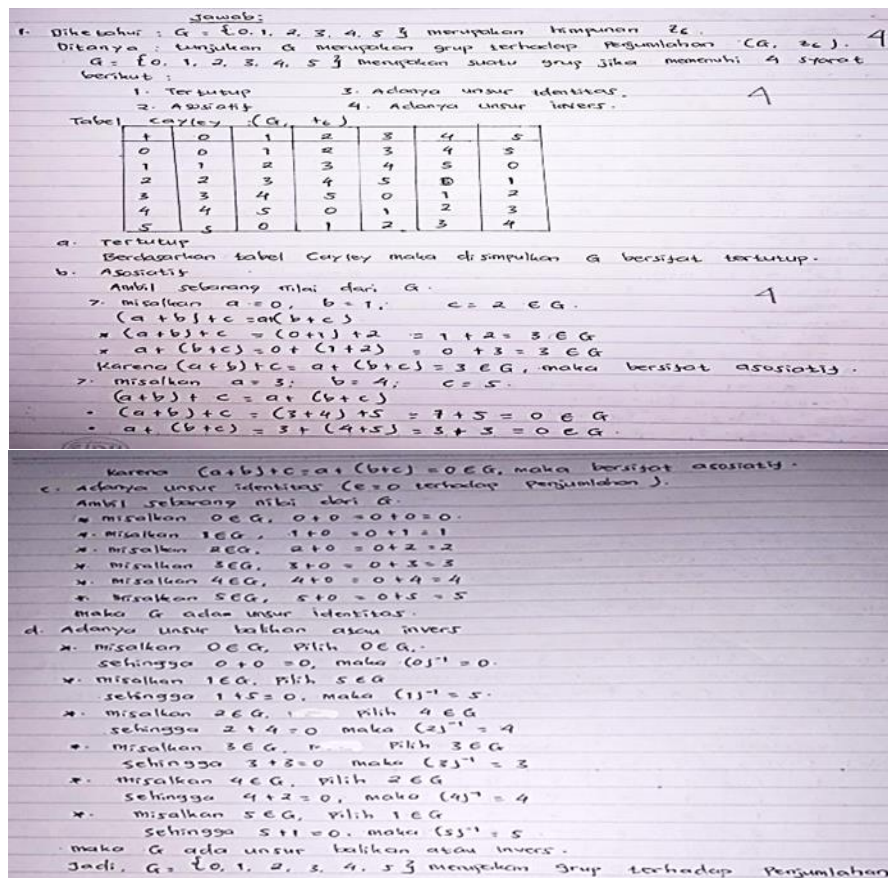 Jawab:
1. Diketahui : G = {0, 1, 2, 3, 4, 5} merupakan himpunan Z6
Ditanya : tunjukan G merupakan grup terhadap Pegumlahan (G, Z6). 4
G = {0, 1, 2, 3, 4, 5} merupakan suatu grup jika memenuhi 4 syarat
berikut :
1. Tertutup 3. Adanya unsur Identitas.
2. Asosiatif 4. Adanya unsur invers. 1
Tabel Cayley (G, +6)
+ 0 1 2 3 4 5
0 0 1 2 3 4 5
1 1 2 3 4 5 0
2 2 3 4 5 0 1
3 3 4 5 0 1 2
4 4 5 0 1 2 3
5 5 0 1 2 3 4
a. Tertutup
Berdasarkan tabel Cayley maka disimpulkan G bersifat tertutup.
b. Asosiatif
Ambil sebarang nilai dari G. 1
>. misalkan a = 0, b = 1, c = 2 ∈ G.
(a + b) + c = a+(b+c)
* (a+b)+c = (0+1)+2 = 1+2 = 3 ∈ G
* a+(b+c) = 0+(1+2) = 0+3 = 3 ∈ G
Karena (a+b)+c = a+(b+c) = 3 ∈ G, maka bersifat asosiatif.
>. misalkan a = 3; b = 4; c = 5.
(a+b)+c = a+(b+c)
• (a+b)+c = (3+4)+5 = 7+5 = 0 ∈ G
• a+(b+c) = 3+(4+5) = 3+3 = 0 ∈ G.
Karena (a+b)+c = a+(b+c) = 0 ∈ G, maka bersifat asosiatif.
c. Adanya unsur identitas (e=0 terhadap Penjumlahan).
Ambil sebarang nilai dari G.
* misalkan 0 ∈ G, 0+0 = 0+0 = 0.
* misalkan 1 ∈ G, 1+0 = 0+1 = 1
* misalkan 2 ∈ G, 2+0 = 0+2 = 2
* misalkan 3 ∈ G, 3+0 = 0+3 = 3
* misalkan 4 ∈ G, 4+0 = 0+4 = 4
* misalkan 5 ∈ G, 5+0 = 0+5 = 5
maka G ada unsur identitas.
d. Adanya unsur balikan atau invers
* misalkan 0 ∈ G, Pilih 0 ∈ G,
sehingga 0+0 = 0, maka (0)⁻¹ = 0.
* misalkan 1 ∈ G. Pilih 5 ∈ G
sehingga 1+5 = 0. maka (1)⁻¹ = 5.
* misalkan 2 ∈ G, pilih 4 ∈ G
sehingga 2+4 = 0 maka (2)⁻¹ = 4
* misalkan 3 ∈ G, Pilih 3 ∈ G
sehingga 3+3 = 0 maka (3)⁻¹ = 3
* misalkan 4 ∈ G, pilih 2 ∈ G
sehingga 4+2 = 0, maka (4)⁻¹ = 4
* misalkan 5 ∈ G, Pilih 1 ∈ G
sehingga 5+1 = 0. maka (5)⁻¹ = 5
maka G ada unsur balikan atau invers.
Jadi, G = {0, 1, 2, 3, 4, 5} merupakan grup terhadap Penjumlahan